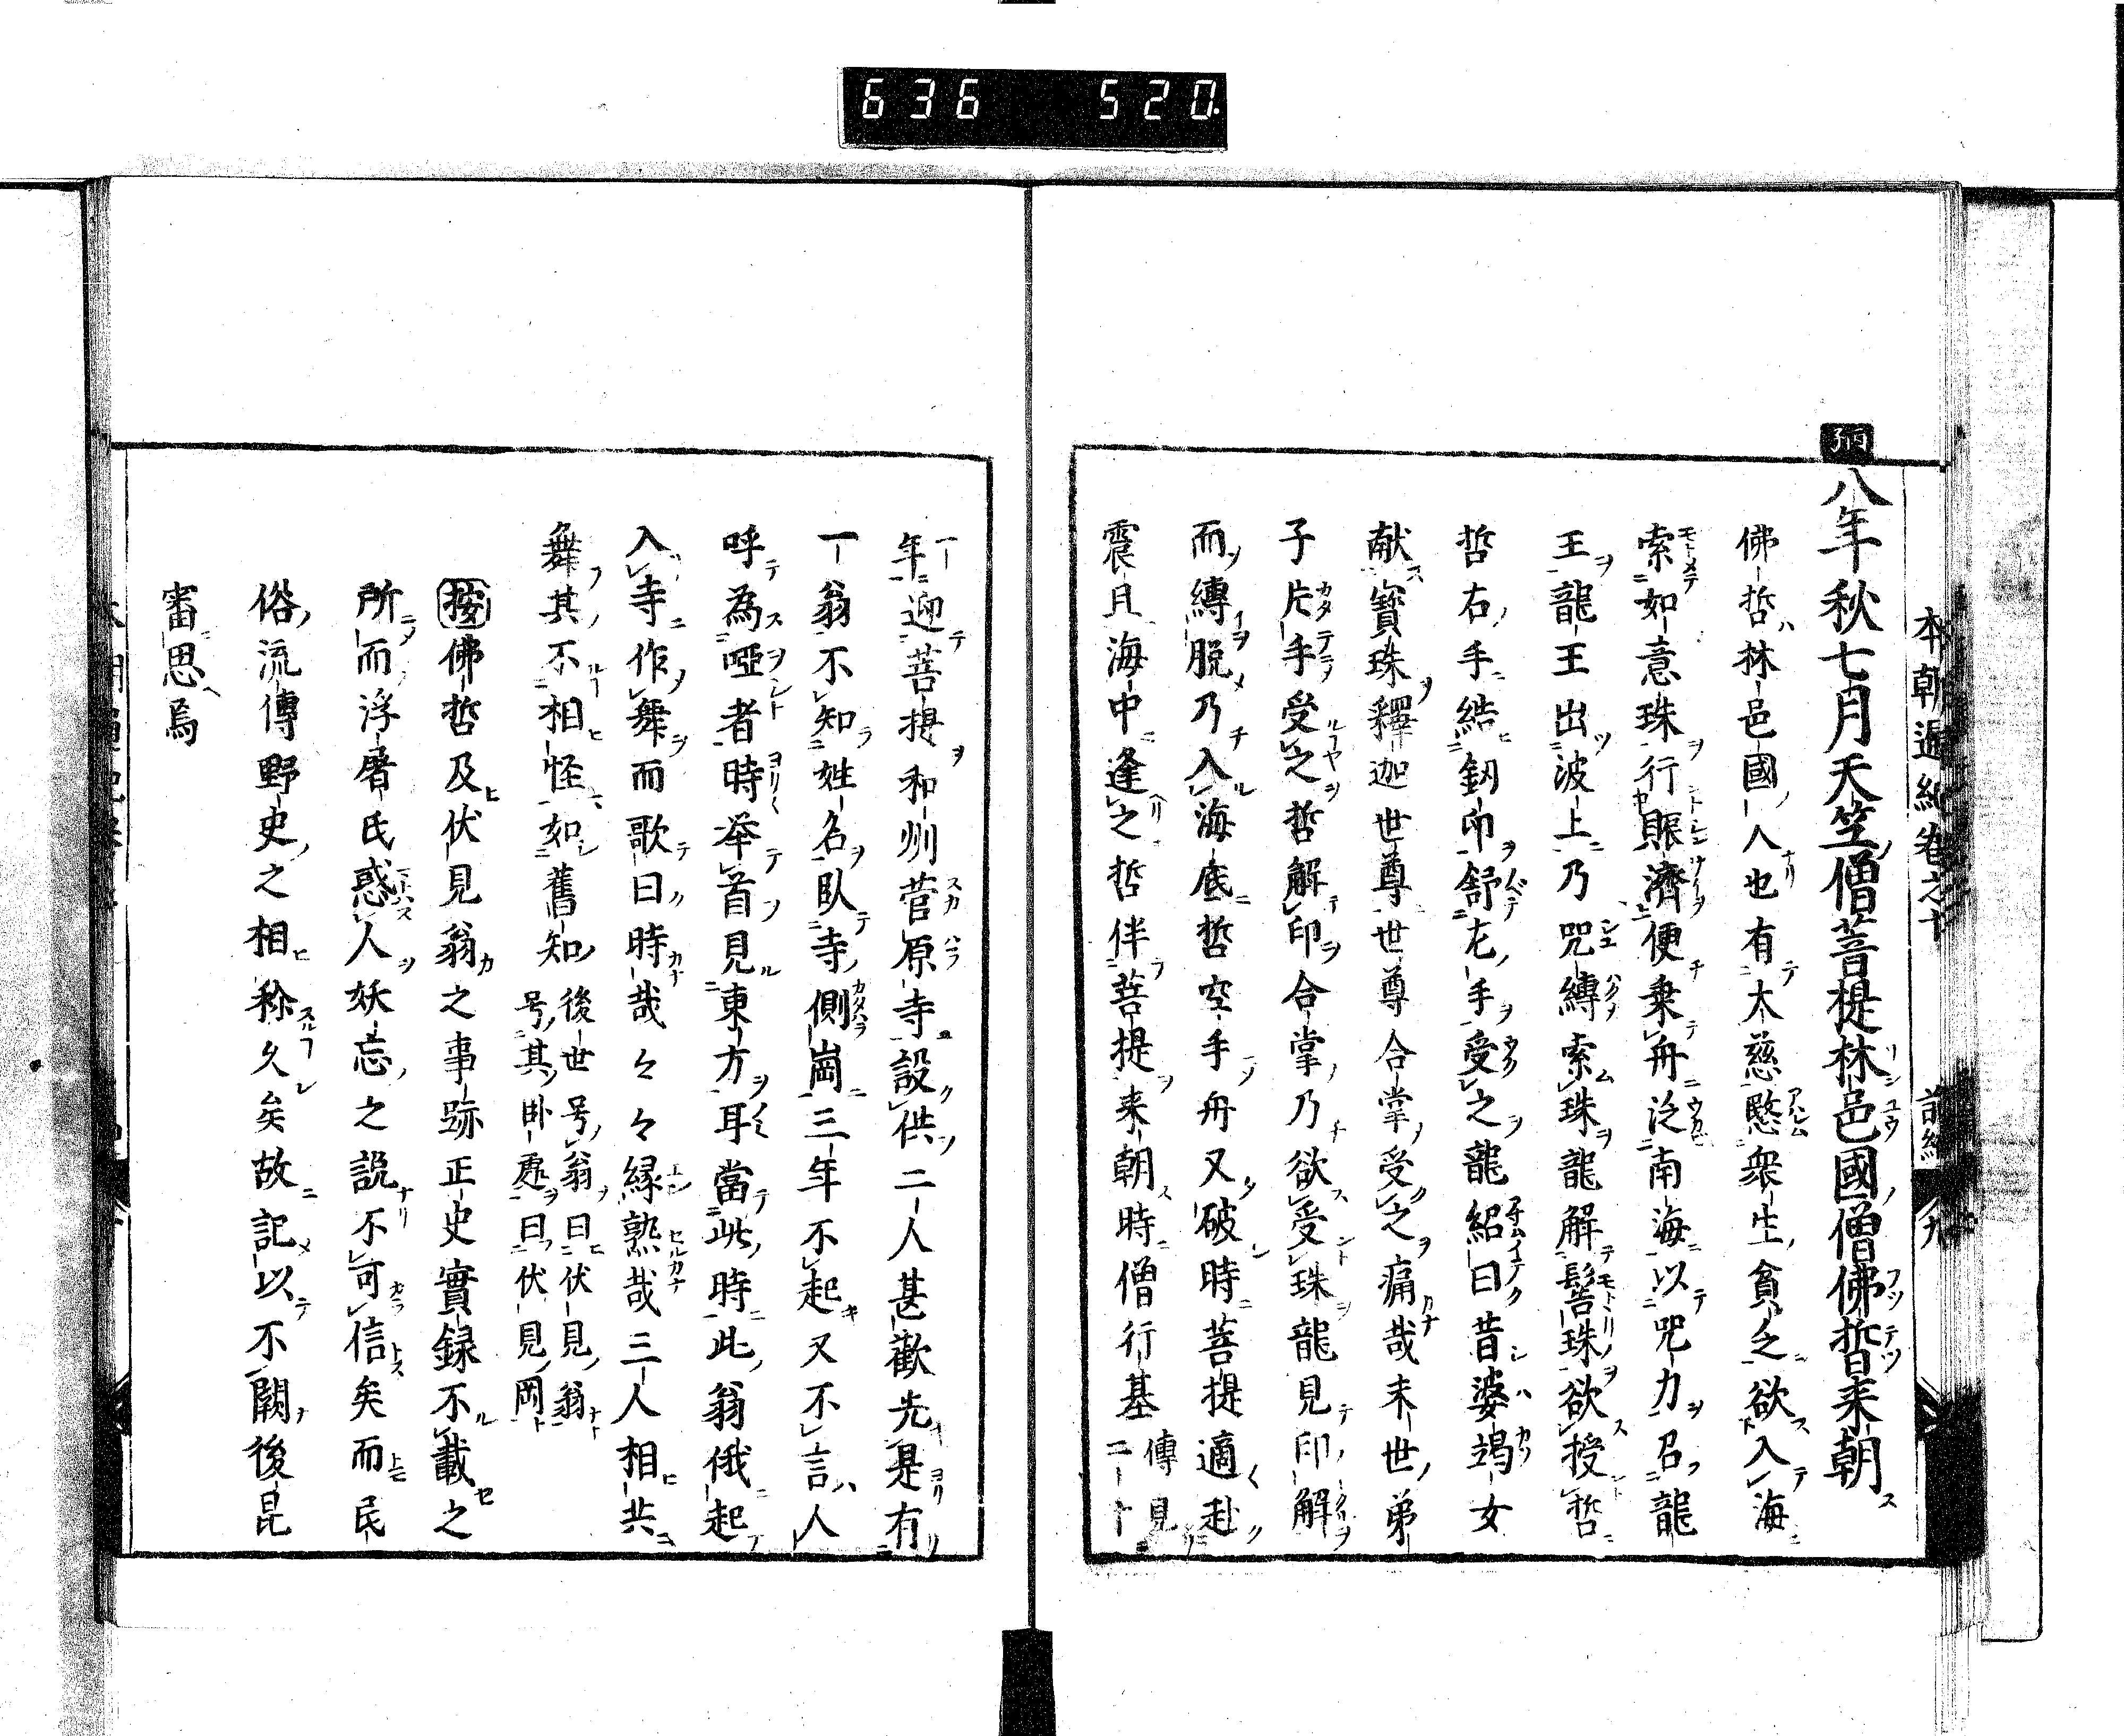 636 520
本朝通紀卷之十 前編 九
丙子
八年秋七月天竺僧菩提林邑國僧佛哲来朝
佛哲林邑國人也有大慈愍衆生貧乏欲入海
索如意珠行賑濟便乗舟泛南海以咒力召龍
王龍王出波上乃咒縛索珠龍解髻珠欲授哲
哲右手結釼印舒左手受之龍紹曰昔婆竭女
献寳珠釋迦世尊世尊合掌受之痛哉末世弟
子片手受之哲解印合掌乃欲受珠龍見印解
而縛脱乃入海底哲空手舟又破時菩提適赴
震旦海中逢之哲伴菩提来朝時僧行基傳見二十
一年迎菩提和州菅原寺設供二人甚歡先是有
一翁不知姓名臥寺側崗三年不起又不言人
呼為啞者時举首見東方耳當此時此翁俄起
入寺作舞而歌曰時哉々々緣熟哉三人相共
舞其不相怪如舊知後世号翁曰伏見翁
号其卧處曰伏見岡
按佛哲及伏見翁之事跡正史實録不載之
所而浮屠氏惑人妖忘之説不可信矣而民
俗流傳野史之相称久矣故記以不闕後昆
審思焉